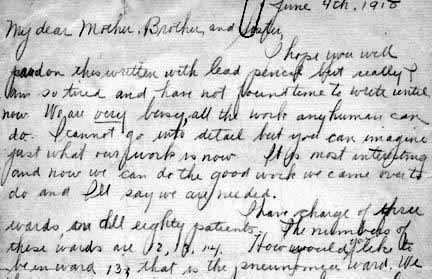 June 4th, 1918
My dear Mother, Brother, and Sister,
I hope you will
pardon this written with lead pencil but really I
am so tired and have not found time to write until
now. We are very busy, all the work any human can
do. I cannot go into detail but you can imagine
just what our work is now. It is most interesting
and now we can do the good work we came over to
do and I'll say we are needed.
I have charge of three
wards, in all eighty patients. The numbers of
these wards are 12, 13, 14. How would you like to
be in ward 13, that is the pneumonia ward. We